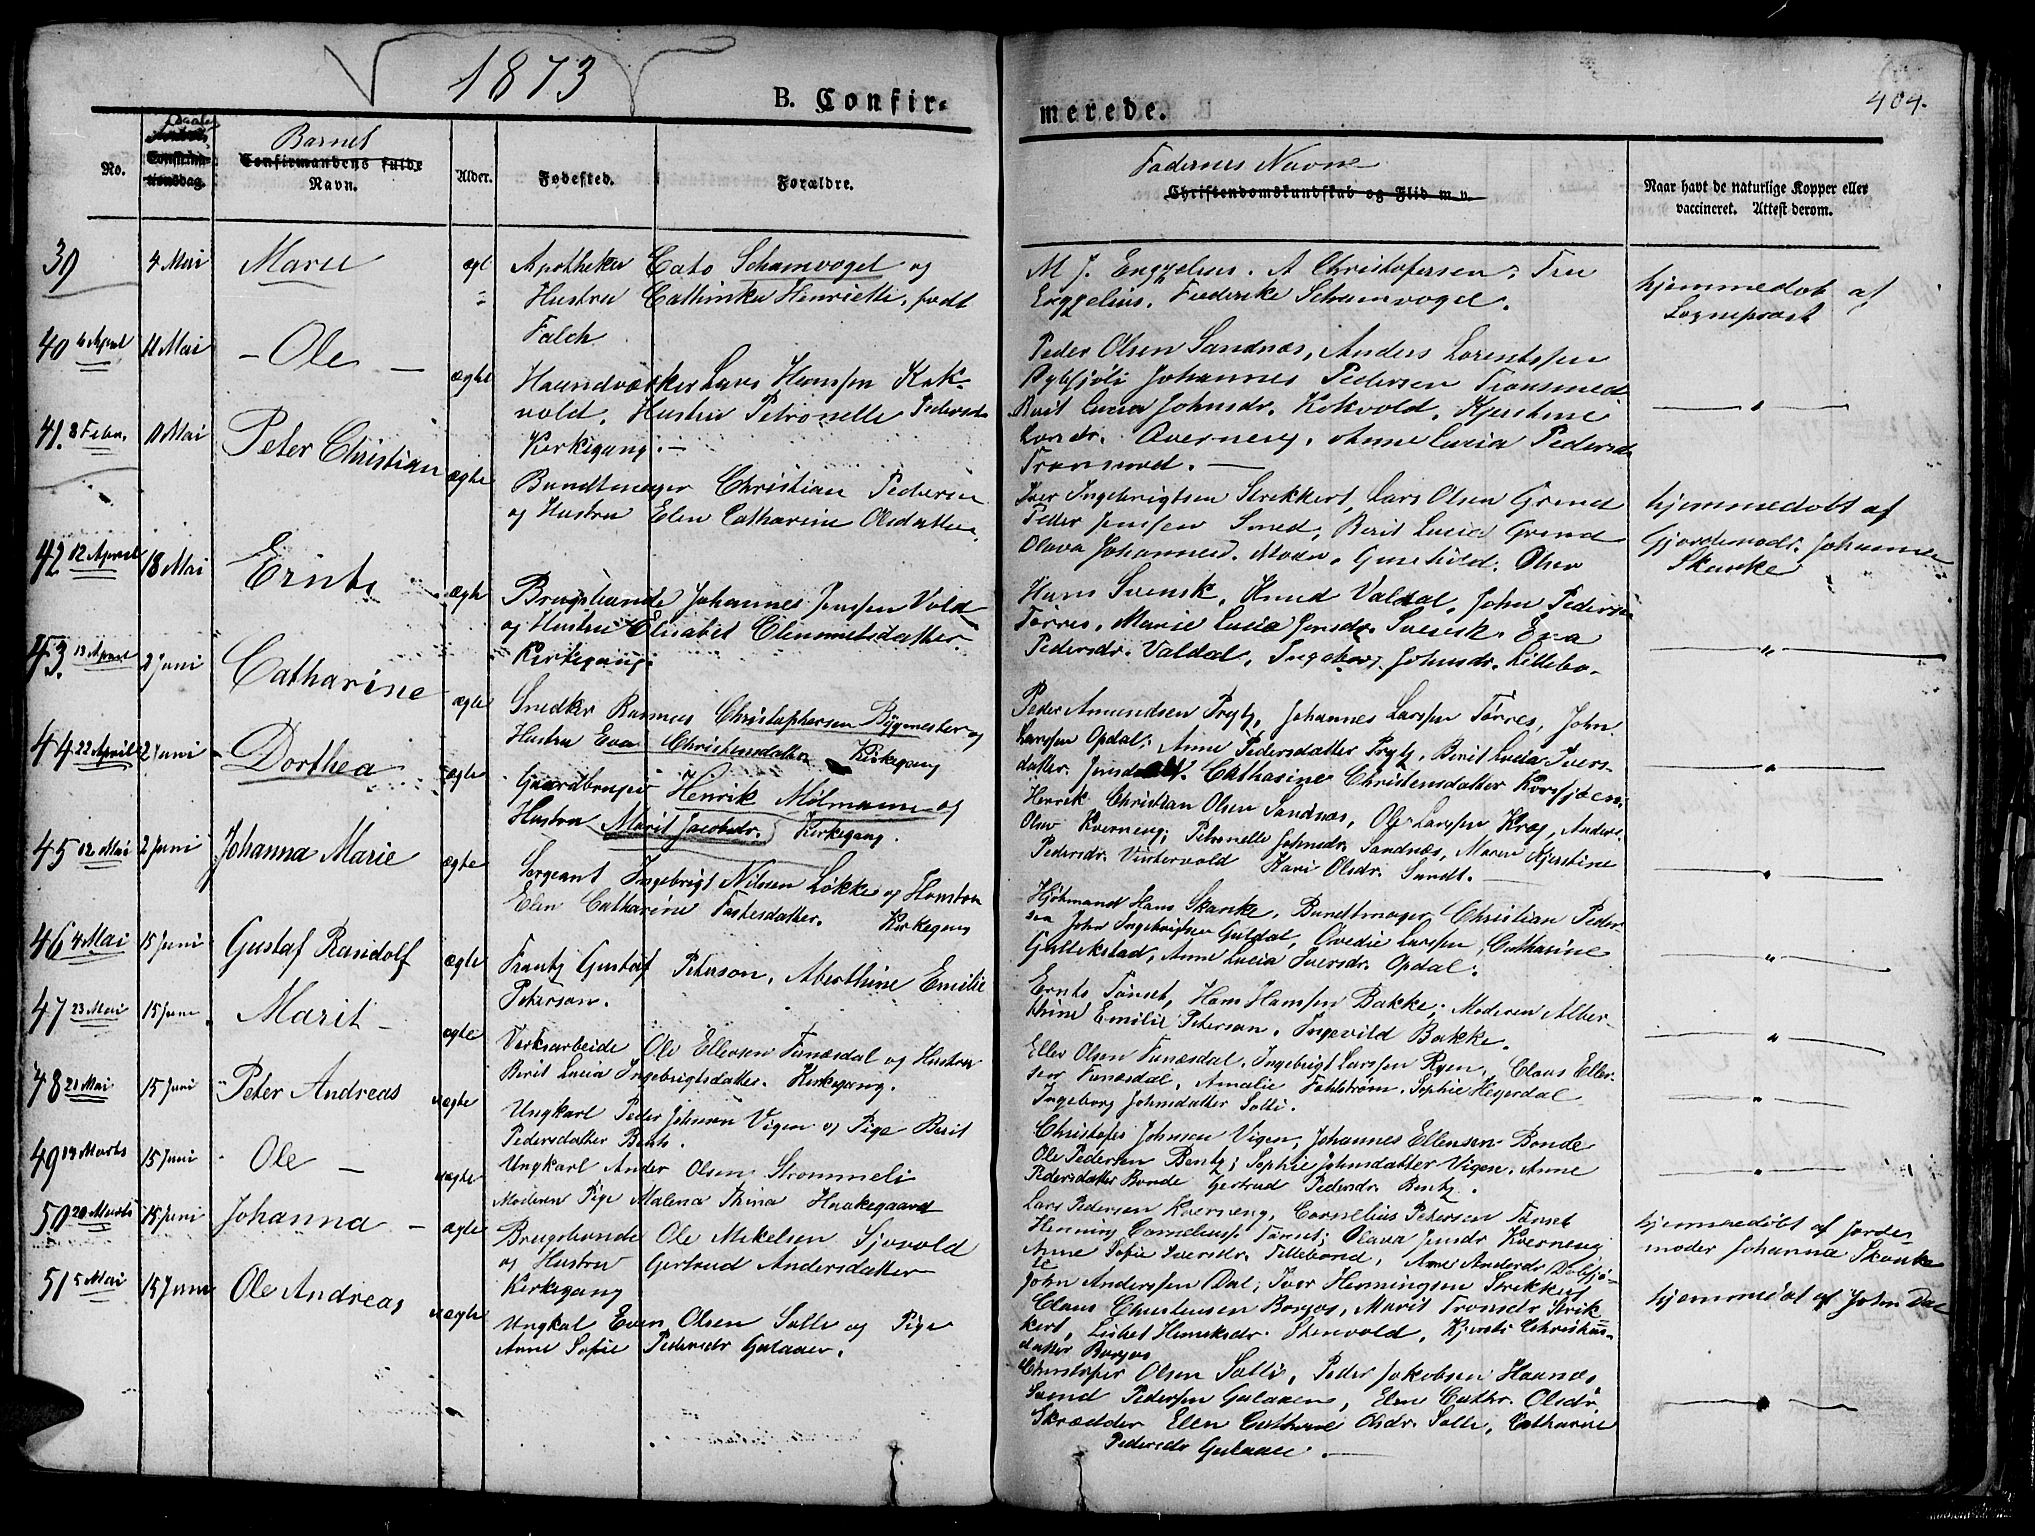 1873
404.
B. Confir-
merede.
Barnets
Fadernes Navne
No.
Confirma-
tionsdag.
Confirmandens fulde
Navn.
Alder.
Fødested.
Forældre.
Christendomskundskab og Flid m. v.
Naar havt de naturlige Kopper eller
vaccineret. Attest derom.
39 4 Mai Marie ægt Apotheker Cato Schamvogel og
Hustru Cathinka Henriette, født
Falch
M J. Engzelius. A Christofersen; Fru
Engzelius, Frederike Schamvogel.
hjemmedøbt af
Sognepræst
40 6 April 11 Mai - Ole - ægte Haandværker Lars Hansen Kok-
vold, Hustru Petronelle Pedersd
Kirkegang. -
Peder Olsen Sandnæs, Anders Lorentssen
Johannes Pedersen Tronsmed
Berit Lucia Johnsdr. Kokvold, Kjerstine
Qverneng, Anne Lucia Pedersd
Tronsmed. -
41. 8 Febr. 11 Mai Peter Christian ægte Bundtmager Christian Pedersen
og Hustru Elen Catharine Olsdatter,
Iver Ingebrigtsen Strekkert, Lars Olsen Grind
Peder Jenssen Smed, Berit Lucia Grind
Olava Johannesd. Moen, Gunhild Olsen
hjemmedøbt af
Gjordemodr. Johanna
Skanke
42 12 April 18 Mai Ernts ægte Brugsbonde Johannes Jenssen Vold
og Hustru Elisabet Clemmetsdatter.
Kirkegang.
Hans Svensk, Knud Valdal, John Pedersen
Tørres, Marie Lucia Jensdr. Svensk. Eva
Pedersdr. Valdal, Ingeborg Johnsdr. Lillebo.
43. 13 April 2 Juni Catharine ægte Snedker Rasmus Christophersen Bygmester og
Hustru Eva Christensdatter Kirkegang
Peder Amundsen Prytz, Johannes Larssen Tørres, John
Larssen Opdal; Anne Pedersdatter Prytz, Berit Lucia Ivers-
datter. Catharine Christensdatter Korssjøen;
44 22 April 2 Juni Dorthea ægte Gaardbruger Henrik Mølmann og
Hustru Marit Jacobsdr. Kirkegang.
Henrik Christian Olsen Sandnæs, Ole Larssen Krog, Anders
Olsen Kverneng; Petronelle Johnsdr. Sandnæs, Maren Kjerstine
Pedersdr. Vintervold Kari Olsdr. Sundt.
45 12 Mai 2 Juni Johanna Marie ægte Sergeant Ingebrigt Nilsen Løkke og Hustru
Elen Catharine Tostesdatter. Kirkegang
Hjelmand Hans Skanke, Bundtmager Christian Peder-
sen John Ingebrigtsen Guldal, Ovedie Larssen, Catharine
Gullikstad, Anne Lucia Iversdr. Opdal.
46 4 Mai 15 Juni Gustaf Randolf ægte Frantz Gustaf Peterson, Alberthine Emilie
Peterson.
Ernts Tønset, Hans Hanssen Bakke; Moderen Alber-
thine Emilie Peterson. Ingevild Bakke.
47 23 Mai 15 Juni Marit - ægte Verksarbeide Ole Ellersen Funæsdal og Hustru
Berit Lucia Ingebrigtsdatter. Kirkegang.
Eller Olsen Funæsdal, Ingebrigt Larssen Ryen, Claus Eller-
sen Funæsdal, Amalie Fahlstrøm, Sophie Hegerdal
Ingeborg Johnsdatter Solli.
48 21 Mai 15 Juni Peter Andreas uægte Ungkarl Peder Johnsen Vigen og Pige Berit
Pedersdatter Bents.
Christofer Johnsen Vigen, Johannes Ellensen Bonde
Ole Pedersen Bentz; Sophie Johnsdatter Vigen, Anne
Pedersdatter Bonde Gertrud Pedersdr Bentz.
49 19 Marts 15 Juni Ole - uægte Ungkarl Ander Olsen Strommeli
Moderen Pige Malena Thina Haakegaard
Lars Pedersen Kverneng, Cornelius Petersen Tønset
Henning Corneliuss Tønset; Olava Jensdr Kverneng
Anne Sofie Iversdr. Lillebond, Anne Andersdr
50 20 Marts 15 Juni Johanna - ægte Brugsbonde Ole Mikelsen Sjovold
og Hustru Gertrud Andersdatter
Kirkegang
John Anderssen Dal, Iver Henningsen Strekkert
Claus Christensen Borgos, Marit Tronsdr Strik-
kert, Lisbet Henriksdr. Stenvold, Kjersti Christens-
datter Borgos
hjemmedøbt af Jorde-
moder Johanna Skanke
hjemmedøbt af John Dal
51 5 Mai 15 Juni Ole Andreas uægte Ungkal Even Olsen Solli og Pige
Anne Sofie Pedersdr Gulaaen.
Christofer Olsen Solli, Peder Jakobsen Haanæs
Svend Pedersen Gulaaen, Elen Cathr. Olsdr.
Skrædder Elen Cathrine Olsdr. Solli, Catharine
Pedersdr Gulaaen. -